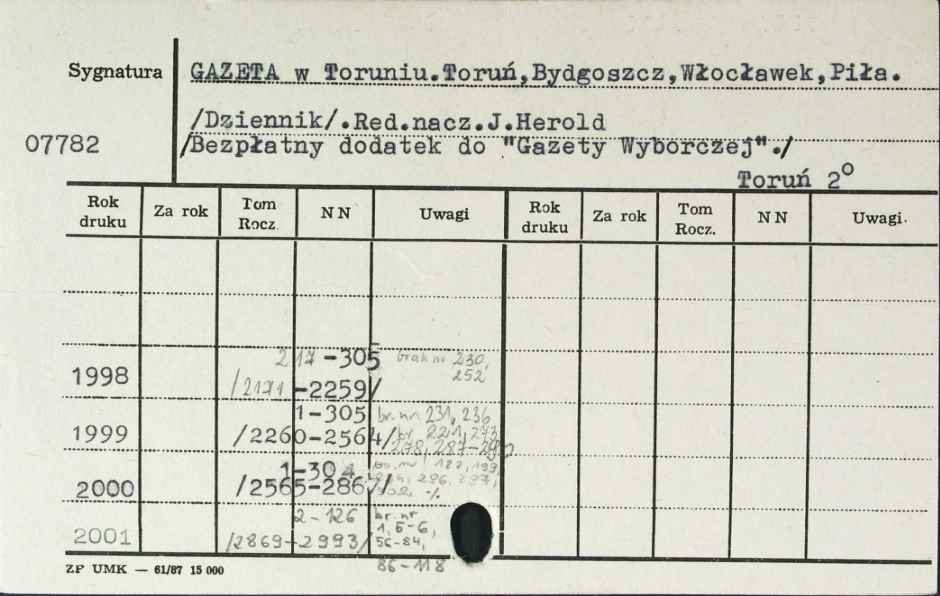 Sygnatura
GAZETA w Toruniu.Toruń,Bydgoszcz,Włocławek,Piła.
/Dziennik/.Red.nacz.J.Herold
07782
/Bezpłatny dodatek do "Gazety Wyborczej"./
Toruń 2°
Rok druku Za rok Tom Rocz. NN Uwagi Rok druku Za rok Tom Rocz. NN Uwagi
217-305 brak nr 230,
1998 /2171-2259/ 252
1-305 br. nr 231, 236
1999 /2260-2564/ br. 221, 273
278, 287-290
1-304
2000 /2565-2867/ 296, 297,
2-126 br. nr
2001 /2869-2993/ 1, 5-6,
56-84,
86-118
ZP UMK — 61/87 15 000